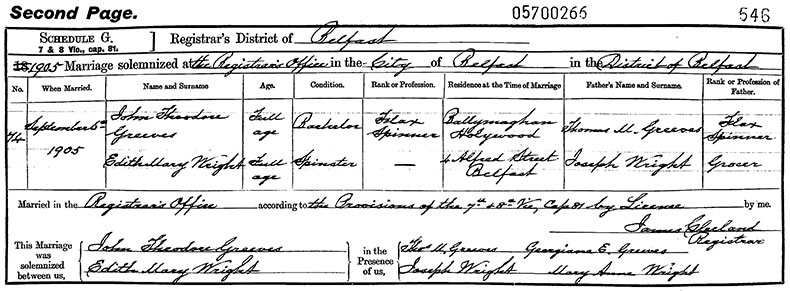 Second Page. 05700266 546
SCHEDULE G. 7 & 8 Vic., cap. 81. } Registrar's District of Belfast
18 1905 Marriage solemnized at the Registrar's Office in the City of Belfast in the District of Belfast
No. When Married. Name and Surname Age. Condition. Rank or Profession. Residence at the Time of Marriage Father's Name and Surname. Rank or Profession of Father.
74 September 5th 1905 John Theodore Greeves Full age Bachelor Flax Spinner Ballymaghan Holywood Thomas M. Greeves Flax Spinner
Edith Mary Wright Full age Spinster — 4 Alfred Street Belfast Joseph Wright Grocer
Married in the Registrar's Office according to the Provisions of the 7th & 8th Vic, Cap 81 by License by me.
James Cleeland
Registrar
This Marriage was solemnized between us, { John Theodore Greeves } in the Presence of us, { Thos M. Greeves Georgiana E. Greeves
Edith Mary Wright Joseph Wright Mary Anne Wright